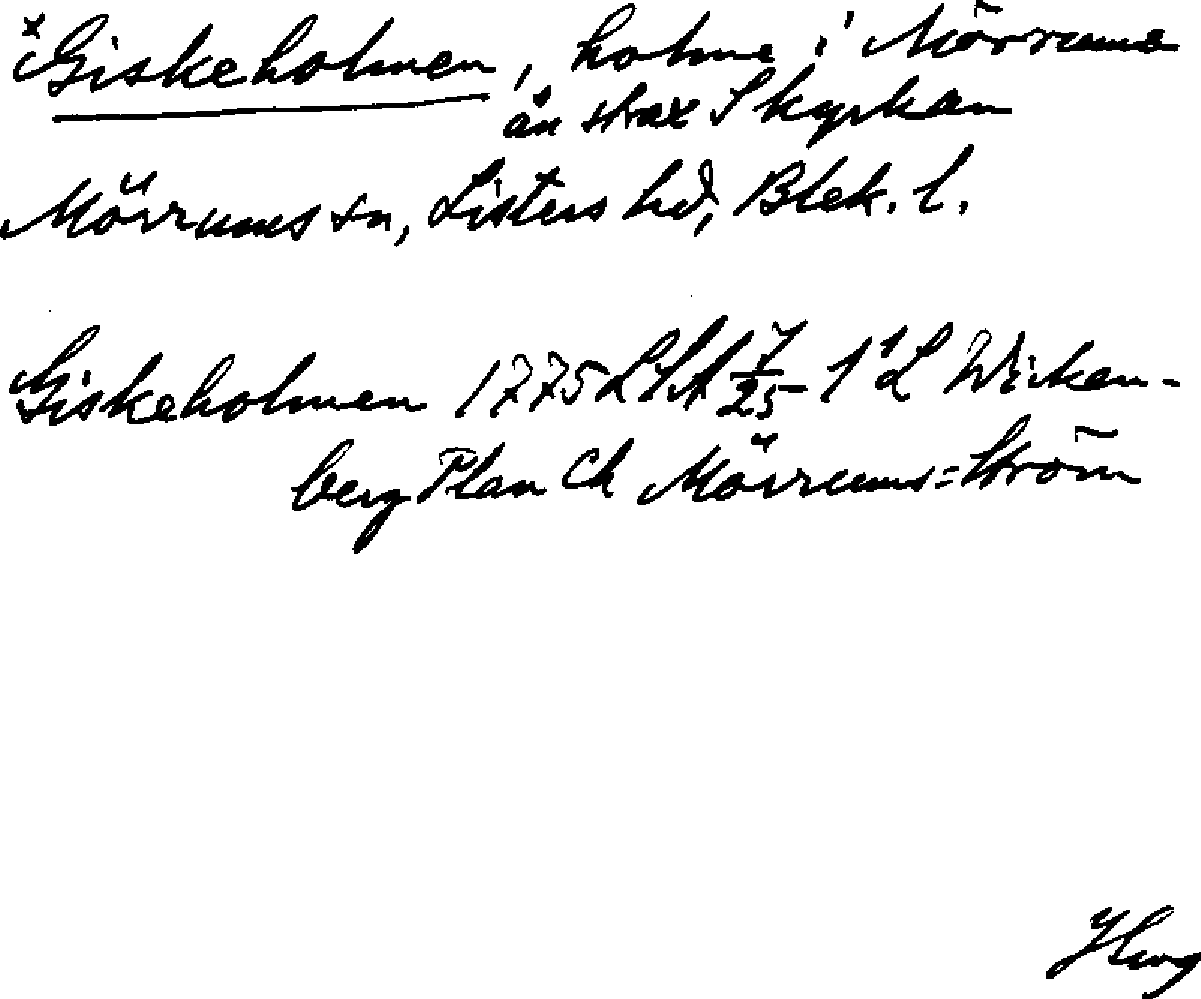 x Giskeholmen, holme i Mörrums
ån strax S kyrkan
Mörrums sn, Listers hd, Blek. l.
Giskeholmen 1775 LSA 7/25 - 1¹ L Wicken-
berg Plan Ch Mörrums=Ström